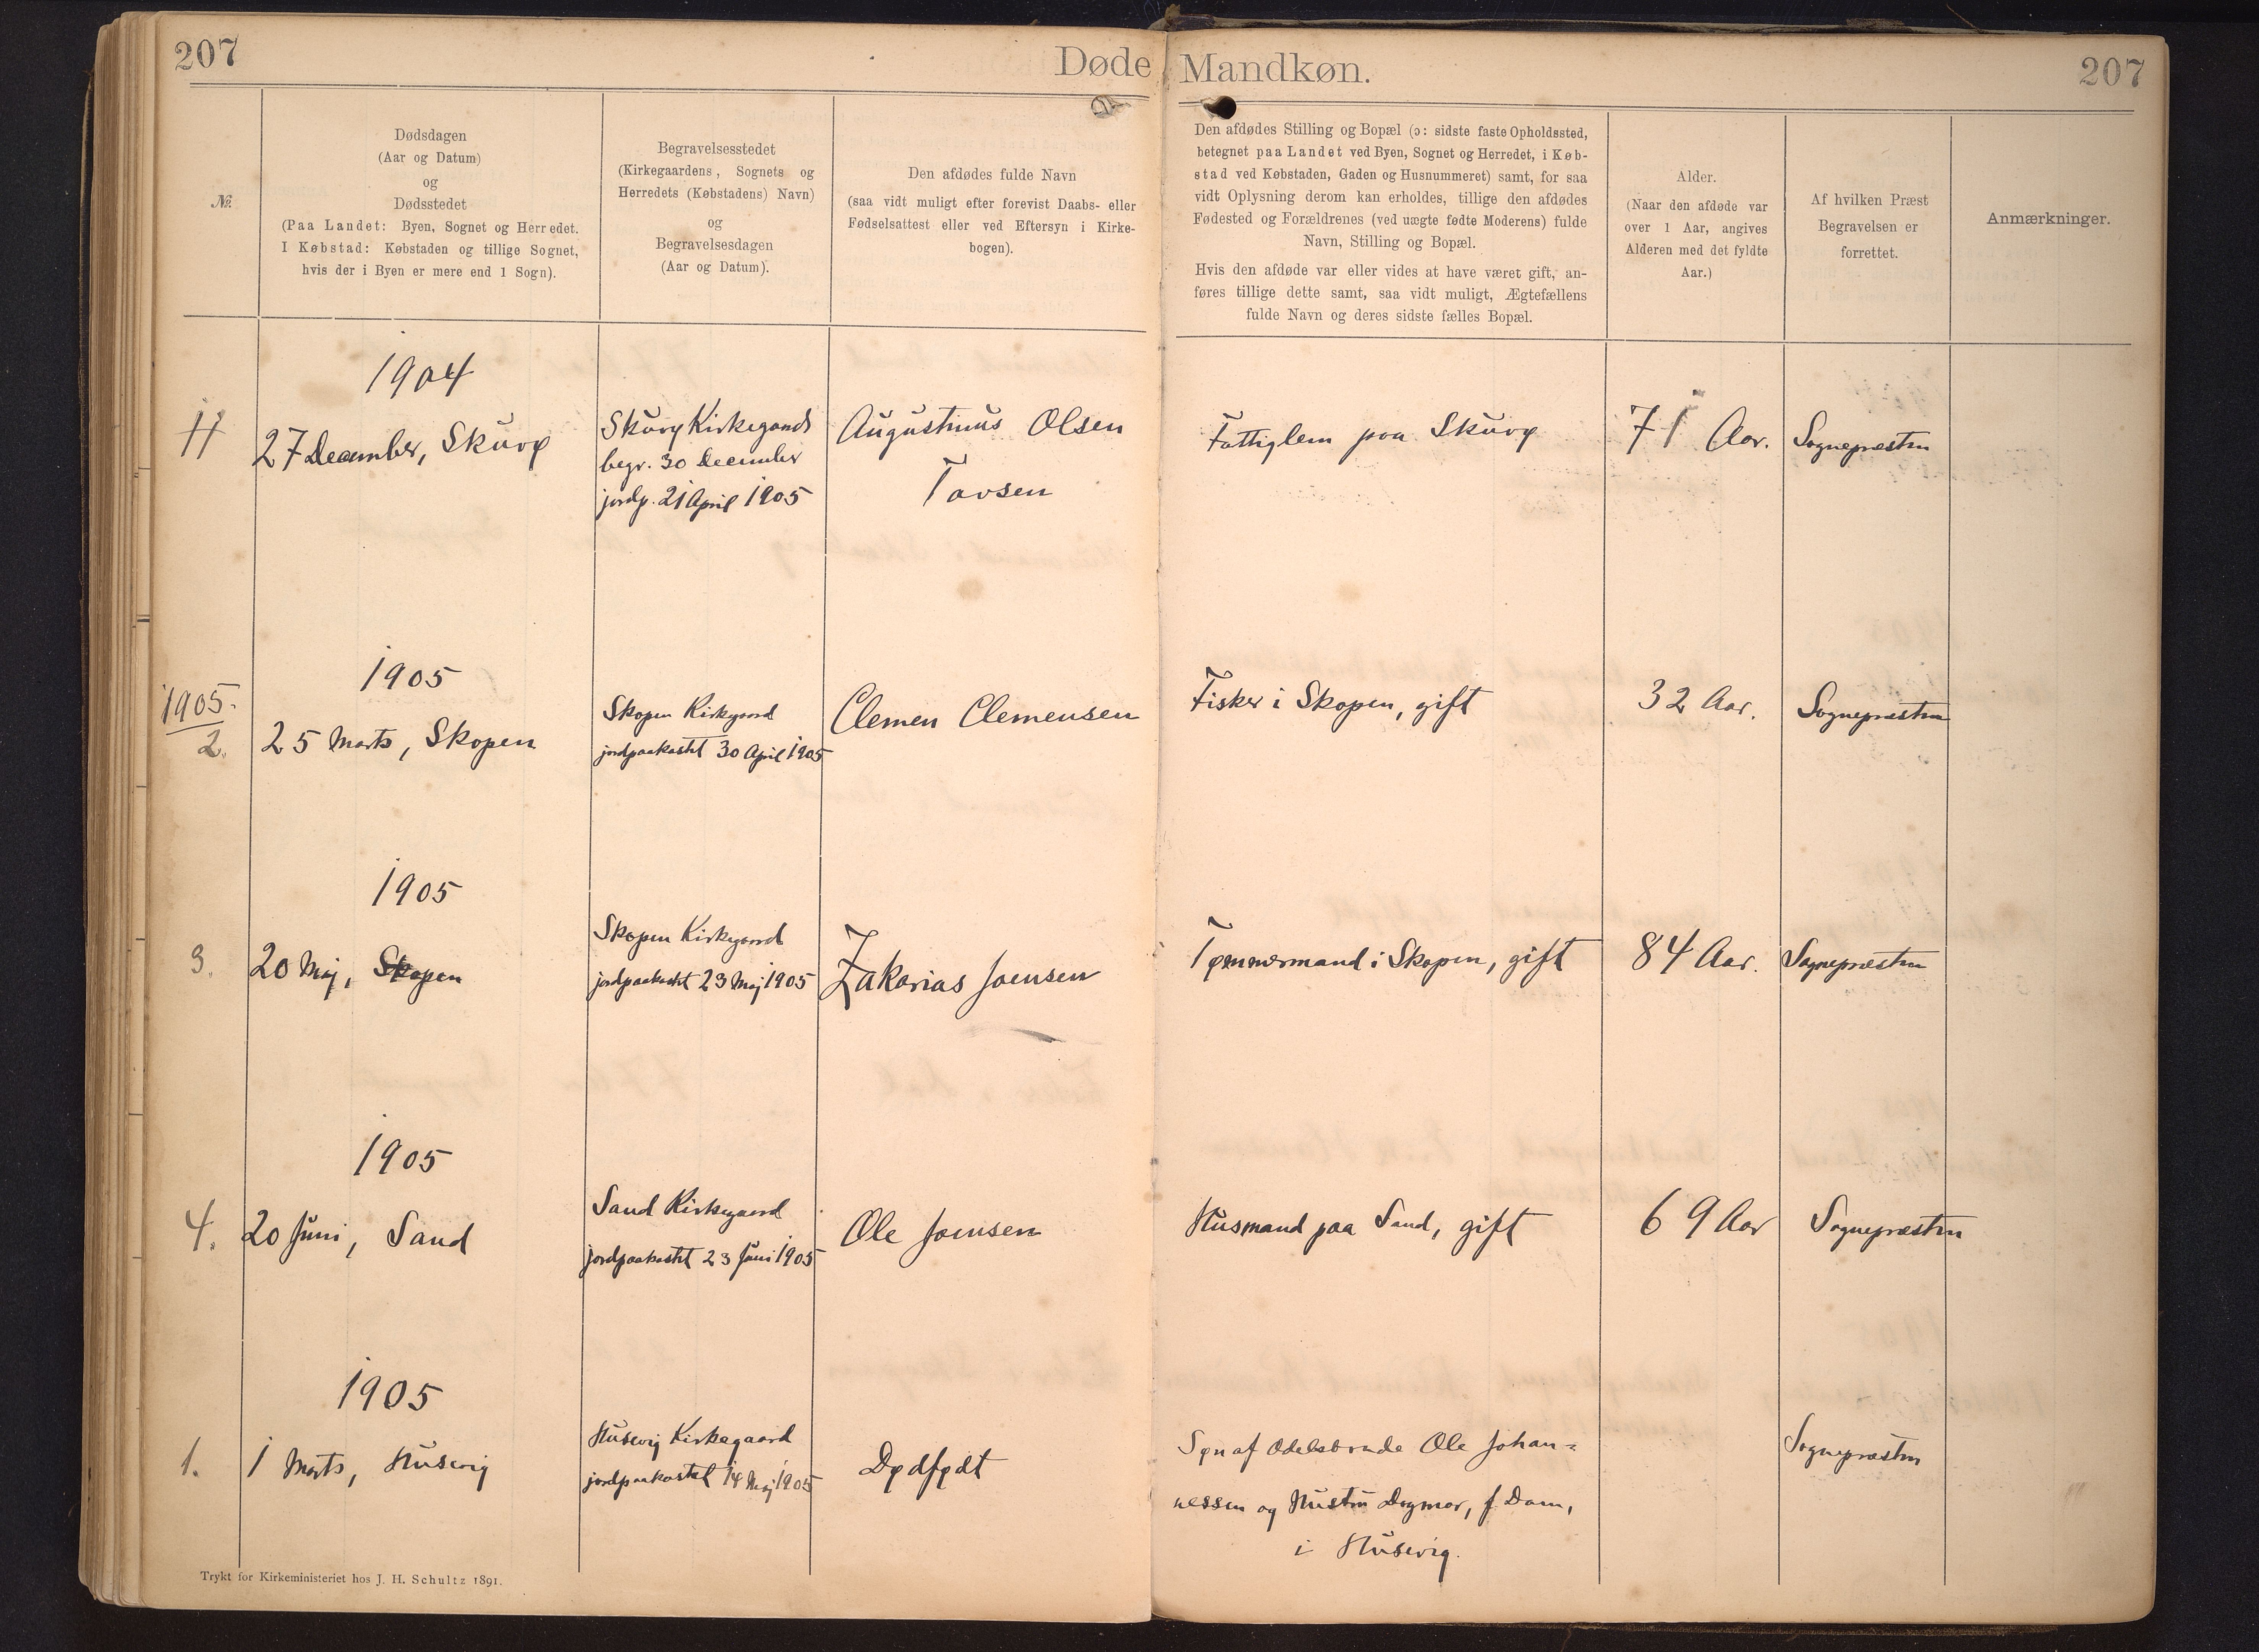 207
Døde Mandkøn.
207
No.
Dødsdagen
(Aar og Datum)
og
Dødsstedet
(Paa Landet: Byen, Sognet og Herredet.
I Købstad: Købstaden og tillige Sognet,
hvis der i Byen er mere end 1 Sogn).
Begravelsesstedet
(Kirkegaardens, Sognets og
Herredets (Købstadens) Navn)
og
Begravelsesdagen
(Aar og Datum).
Den afdødes fulde Navn
(saa vidt muligt efter forevist Daabs- eller
Fødselsattest eller ved Eftersyn i Kirke-
bogen).
Den afdødes Stilling og Bopæl (ɔ: sidste faste Opholdssted,
betegnet paa Landet ved Byen, Sognet og Herredet, i Køb-
stad ved Købstaden, Gaden og Husnummeret) samt, for saa
vidt Oplysning derom kan erholdes, tillige den afdødes
Fødested og Forældrenes (ved uægte fødte Moderens) fulde
Navn, Stilling og Bopæl.
Hvis den afdøde var eller vides at have været gift, an-
føres tillige dette samt, saa vidt muligt, Ægtefællens
fulde Navn og deres sidste fælles Bopæl.
Alder.
(Naar den afdøde var
over 1 Aar, angives
Alderen med det fyldte
Aar.)
Af hvilken Præst
Begravelsen er
forrettet.
Anmærkninger.
1904
11
27 December, Skuvø
Skuvø Kirkegaard
begr. 30 December
jordp. 21 April 1905
Augustinus Olsen
Tavsen
Fattiglem paa Skuvø
71 Aar.
Sognepræsten
1905
1905.
2.
25 Marts, Skopen
Skopen Kirkegaard
jordpaakastet 30 April 1905
Clemen Clemensen
Fisker i Skopen, gift
32 Aar.
Sognepræsten
1905
3.
20 Maj, Skopen
Skopen Kirkegaard
jordpaakastet 23 Maj 1905
Zakarias Joensen
Tømmermand i Skopen, gift
84 Aar.
Sognepræsten
1905
4.
20 Juni, Sand
Sand Kirkegaard
jordpaakastet 23 Juni 1905
Ole Joensen
Husmand paa Sand, gift
69 Aar
Sognepræsten
1905
1.
1 Marts, Husevig
Husevig Kirkegaard
jordpaakastet 14 Maj 1905
Dødfødt
Søn af Odelsbonde Ole Johan=
nessen og Hustru Dagmar, f. Dam,
i Husevig.
Sognepræsten
Trykt for Kirkeministeriet hos J. H. Schultz 1891.